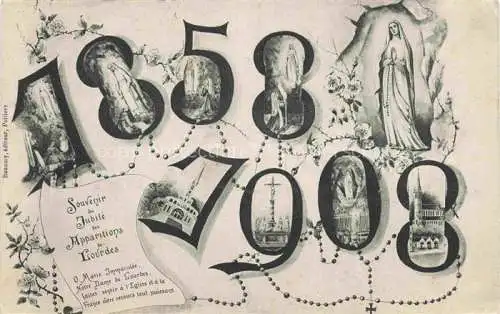 1858
1908
Souvenir
du
Jubilé
des
Apparitions
de
Lourdes
O Marie Immaculée,
Notre Dame de Lourdes
faites sentir à l'Eglise et à la
France votre secours tout puissant
éditeur, Poitiers